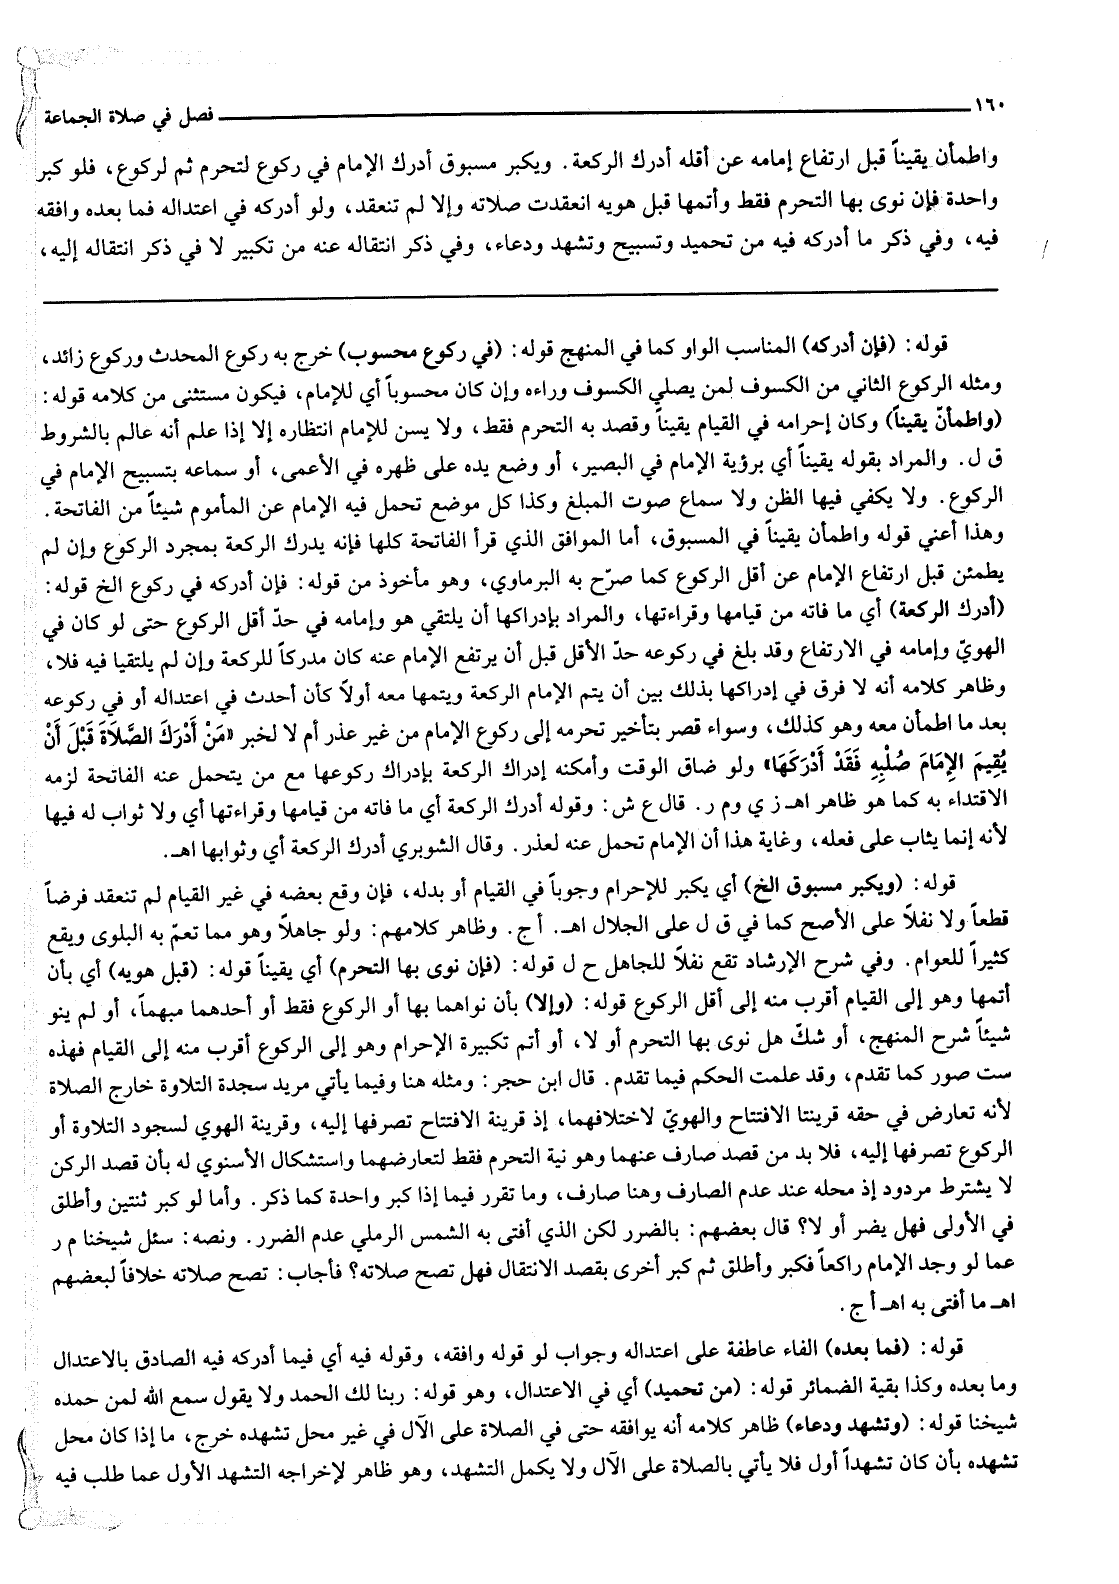 ١٦٠ فصل في صلاة الجماعة
واطمأن يقيناً قبل ارتفاع إمامه عن أقله أدرك الركعة. ويكبر مسبوق أدرك الإمام في ركوع لتحرم ثم لركوع، فلو كبر
واحدة فإن نوى بها التحرم فقط وأتمها قبل هويه انعقدت صلاته وإلا لم تنعقد، ولو أدركه في اعتداله فما بعده وافقه
فيه، وفي ذكر ما أدركه فيه من تحميد وتسبيح وتشهد ودعاء، وفي ذكر انتقاله عنه من تكبير لا في ذكر انتقاله إليه،
قوله: (فإن أدركه) المناسب الواو كما في المنهج قوله: (في ركوع محسوب) خرج به ركوع المحدث وركوع زائد،
ومثله الركوع الثاني من الكسوف لمن يصلي الكسوف وراءه وإن كان محسوباً أي للإمام، فيكون مستثنى من كلامه قوله:
(واطمأنّ يقيناً) وكان إحرامه في القيام يقيناً وقصد به التحرم فقط، ولا يسن للإمام انتظاره إلا إذا علم أنه عالم بالشروط
ق ل. والمراد بقوله يقيناً أي برؤية الإمام في البصير، أو وضع يده على ظهره في الأعمى، أو سماعه بتسبيح الإمام في
الركوع. ولا يكفي فيها الظن ولا سماع صوت المبلغ وكذا كل موضع تحمل فيه الإمام عن المأموم شيئاً من الفاتحة.
وهذا أعني قوله واطمأن يقيناً في المسبوق، أما الموافق الذي قرأ الفاتحة كلها فإنه يدرك الركعة بمجرد الركوع وإن لم
يطمئن قبل ارتفاع الإمام عن أقل الركوع كما صرّح به البرماوي، وهو مأخوذ من قوله: فإن أدركه في ركوع الخ قوله:
(أدرك الركعة) أي ما فاته من قيامها وقراءتها، والمراد بإدراكها أن يلتقي هو وإمامه في حدّ أقل الركوع حتى لو كان في
الهويّ وإمامه في الارتفاع وقد بلغ في ركوعه حدّ الأقل قبل أن يرتفع الإمام عنه كان مدركاً للركعة وإن لم يلتقيا فيه فلا،
وظاهر كلامه أنه لا فرق في إدراكها بذلك بين أن يتم الإمام الركعة ويتمها معه أولاً كأن أحدث في اعتداله أو في ركوعه
بعد ما اطمأن معه وهو كذلك، وسواء قصر بتأخير تحرمه إلى ركوع الإمام من غير عذر أم لا لخبر «مَنْ أَدْرَكَ الصَّلَاةَ قَبْلَ أَنْ
يُقِيمَ الإِمَامَ صُلْبِهِ فَقَدْ أَدْرَكَهَا» ولو ضاق الوقت وأمكنه إدراك الركعة بإدراك ركوعها مع من يتحمل عنه الفاتحة لزمه
الاقتداء به كما هو ظاهر اهـ ز ي و م ر. قال ع ش: وقوله أدرك الركعة أي ما فاته من قيامها وقراءتها أي ولا ثواب له فيها
لأنه إنما يثاب على فعله، وغاية هذا أن الإمام تحمل عنه لعذر. وقال الشوبري أدرك الركعة أي وثوابها اهـ.
قوله: (ويكبر مسبوق الخ) أي يكبر للإحرام وجوباً في القيام أو بدله، فإن وقع بعضه في غير القيام لم تنعقد فرضاً
قطعاً ولا نفلاً على الأصح كما في ق ل على الجلال اهـ. أ ج. وظاهر كلامهم: ولو جاهلاً وهو مما تعمّ به البلوى ويقع
كثيراً للعوام. وفي شرح الإرشاد تقع نفلاً للجاهل ح ل قوله: (فإن نوى بها التحرم) أي يقيناً قوله: (قبل هويه) أي بأن
أتمها وهو إلى القيام أقرب منه إلى أقل الركوع قوله: (وإلا) بأن نواهما بها أو الركوع فقط أو أحدهما مبهماً، أو لم ينو
شيئاً شرح المنهج، أو شكّ هل نوى بها التحرم أو لا، أو أتم تكبيرة الإحرام وهو إلى الركوع أقرب منه إلى القيام فهذه
ست صور كما تقدم، وقد علمت الحكم فيما تقدم. قال ابن حجر: ومثله هنا وفيما يأتي مريد سجدة التلاوة خارج الصلاة
لأنه تعارض في حقه قرينتا الافتتاح والهويّ لاختلافهما، إذ قرينة الافتتاح تصرفها إليه، وقرينة الهوي لسجود التلاوة أو
الركوع تصرفها إليه، فلا بد من قصد صارف عنهما وهو نية التحرم فقط لتعارضهما واستشكال الأسنوي له بأن قصد الركن
لا يشترط مردود إذ محله عند عدم الصارف وهنا صارف، وما تقرر فيما إذا كبر واحدة كما ذكر. وأما لو كبر ثنتين وأطلق
في الأولى فهل يضر أو لا؟ قال بعضهم: بالضرر لكن الذي أفتى به الشمس الرملي عدم الضرر. ونصه: سئل شيخنا م ر
عما لو وجد الإمام راكعاً فكبر وأطلق ثم كبر أخرى بقصد الانتقال فهل تصح صلاته؟ فأجاب: تصح صلاته خلافاً لبعضهم
اهـ ما أفتى به اهـ أ ج.
قوله: (فما بعده) الفاء عاطفة على اعتداله وجواب لو قوله وافقه، وقوله فيه أي فيما أدركه فيه الصادق بالاعتدال
وما بعده وكذا بقية الضمائر قوله: (من تحميد) أي في الاعتدال، وهو قوله: ربنا لك الحمد ولا يقول سمع الله لمن حمده
شيخنا قوله: (وتشهد ودعاء) ظاهر كلامه أنه يوافقه حتى في الصلاة على الآل في غير محل تشهده خرج، ما إذا كان محل
تشهده بأن كان تشهداً أول فلا يأتي بالصلاة على الآل ولا يكمل التشهد، وهو ظاهر لإخراجه التشهد الأول عما طلب فيه